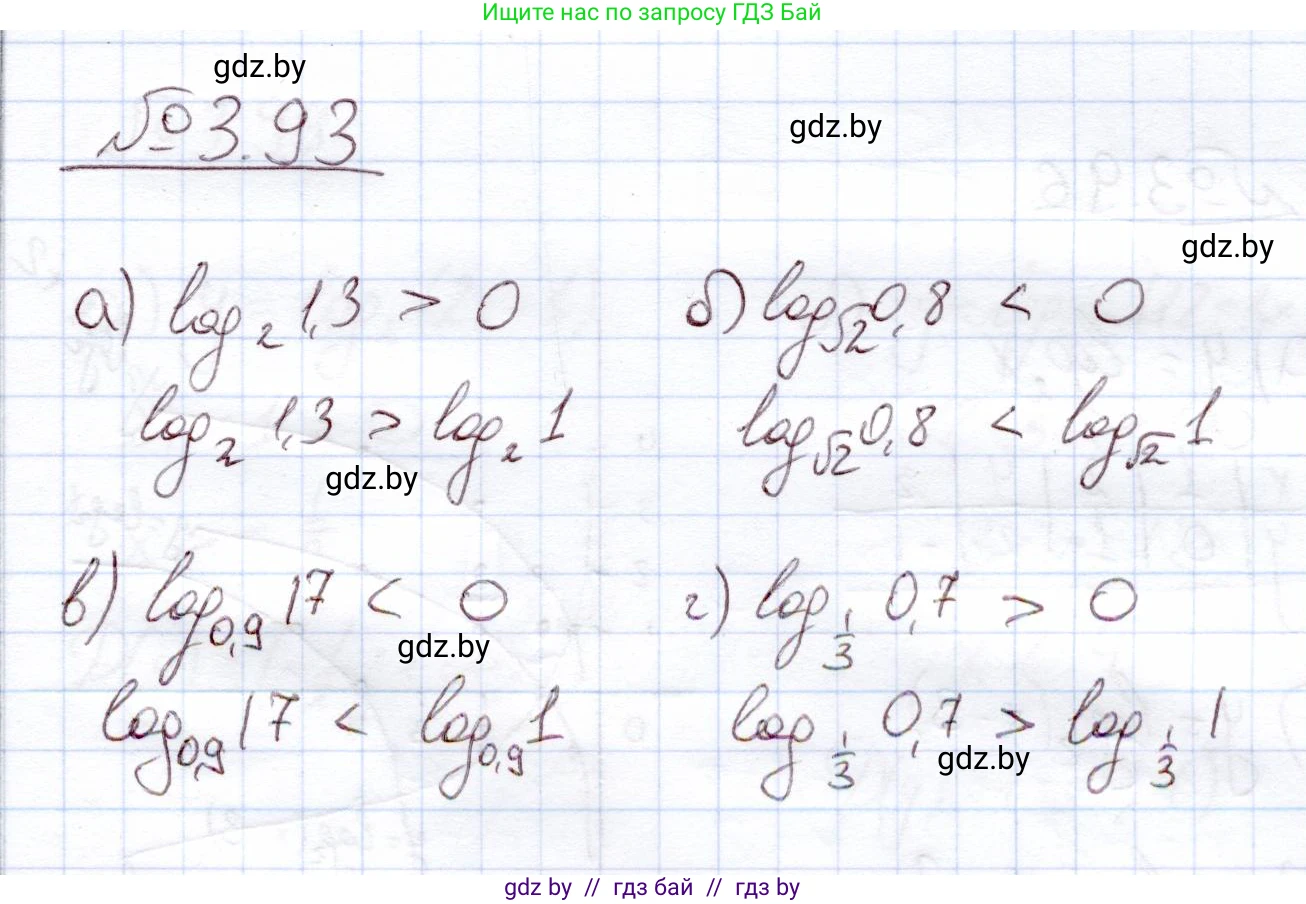 Ищите нас по запросу ГДЗ Бай
gdz.by
№ 3.93
gdz.by
gdz.by
а) log₂ 1,3 > 0
log₂ 1,3 > log₂ 1
gdz.by
б) log_√2 0,8 < 0
log_√2 0,8 < log_√2 1
в) log_0,9 17 < 0
gdz.by
log_0,9 17 < log_0,9 1
г) log_1/3 0,7 > 0
log_1/3 0,7 > log_1/3 1
gdz.by
gdz by // гдз бай // гдз by